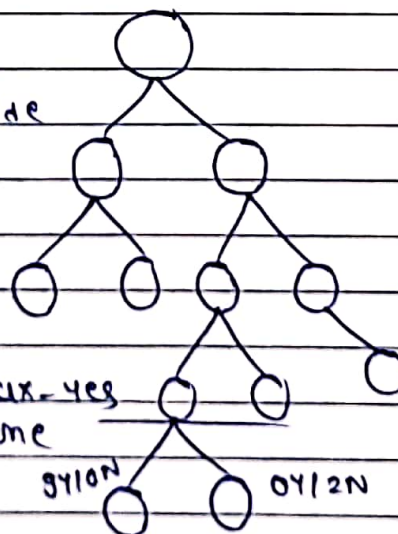 de
ux-yes
me
9Y/0N
0Y/2N